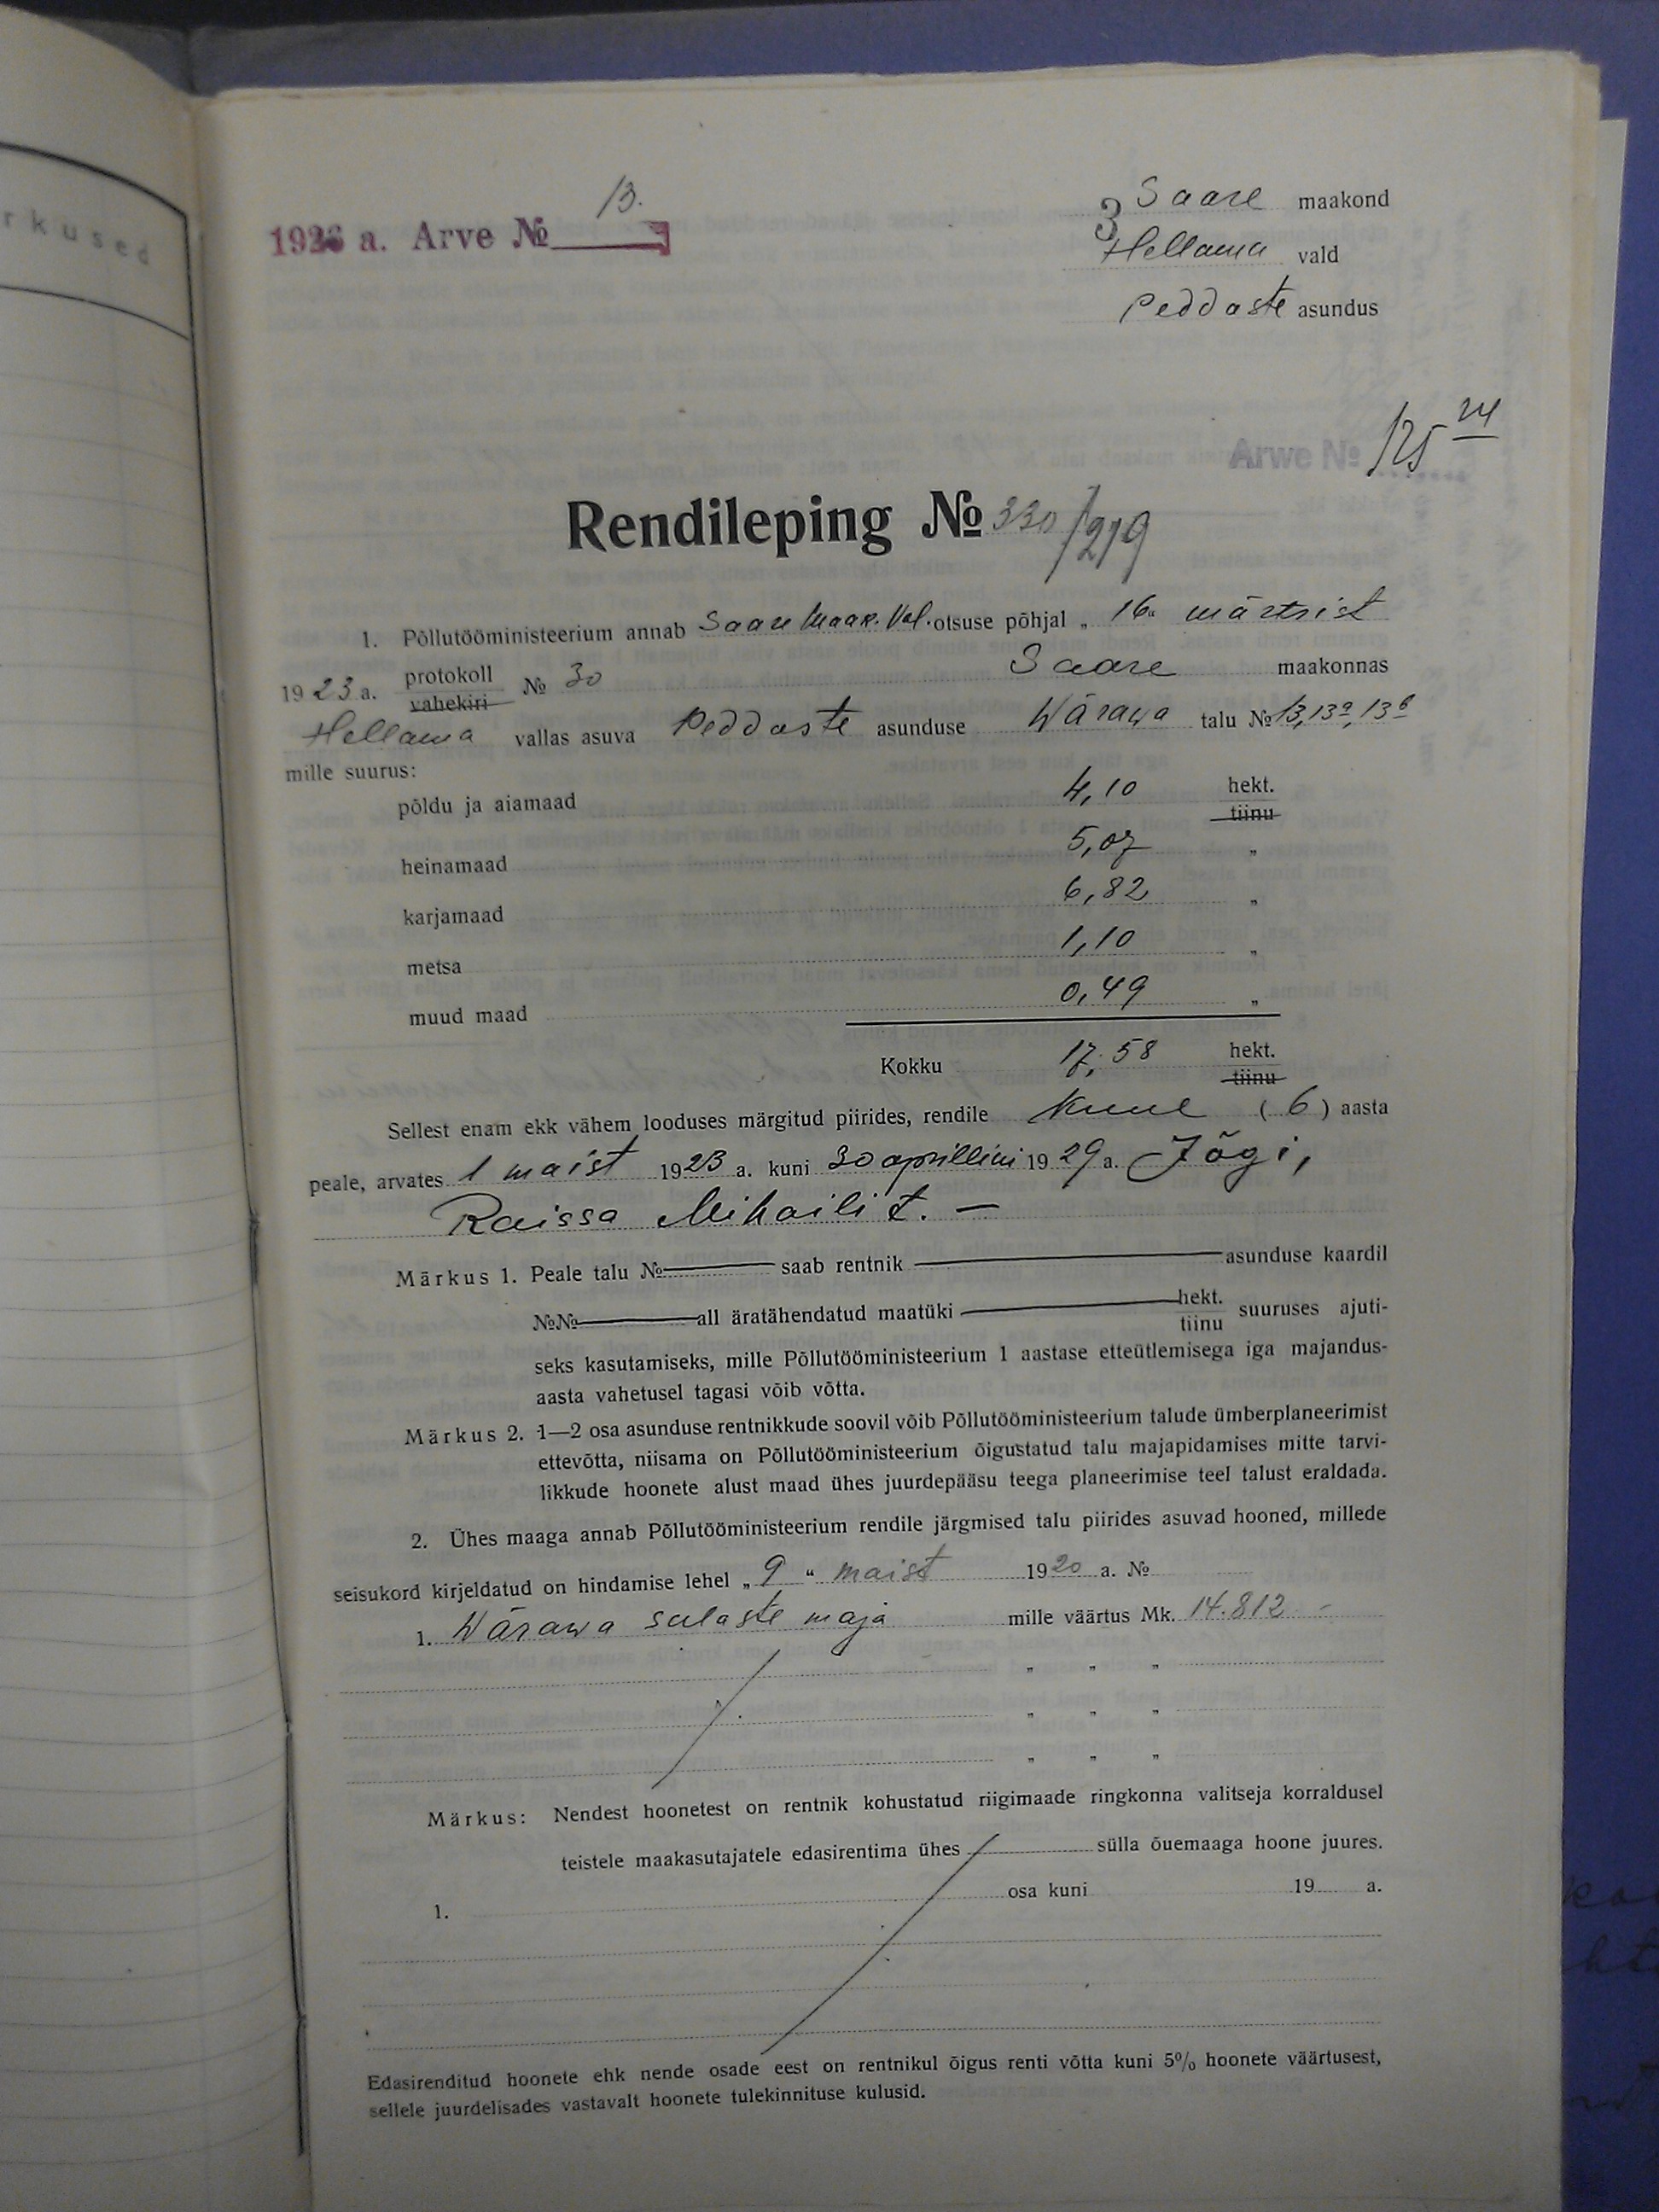 rkused
13.
1926 a. Arve №
Saare maakond
3
Hellama vald
Peddaste asundus
Arwe № 125 24
Rendileping № 330/219
1. Põllutööministeerium annab Saare Maak. Val. otsuse põhjal „ 16 “ märtsist
1923 a. protokoll № 30 Saare maakonnas
vahekiri
Hellama vallas asuva Peddaste asunduse Wärawa talu № 13, 13a, 13b
mille suurus:
põldu ja aiamaad 4,10 hekt.
tiinu
heinamaad 5,07 „
karjamaad 6,82 „
metsa 1,10 „
muud maad 0,49 „
Kokku 17,58 hekt.
tiinu
Sellest enam ekk vähem looduses märgitud piirides, rendile kuue ( 6 ) aasta
peale, arvates 1 maist 1923 a. kuni 30 aprillini 1929 a. Jõgi,
Raissa Mihaili t. —
Märkus 1. Peale talu № saab rentnik asunduse kaardil
№№ all äratähendatud maatüki hekt. suuruses ajuti-
tiinu
seks kasutamiseks, mille Põllutööministeerium 1 aastase etteütlemisega iga majandus-
aasta vahetusel tagasi võib võtta.
Märkus 2. 1—2 osa asunduse rentnikkude soovil võib Põllutööministeerium talude ümberplaneerimist
ettevõtta, niisama on Põllutööministeerium õigustatud talu majapidamises mitte tarvi-
likkude hoonete alust maad ühes juurdepääsu teega planeerimise teel talust eraldada.
2. Ühes maaga annab Põllutööministeerium rendile järgmised talu piirides asuvad hooned, millede
seisukord kirjeldatud on hindamise lehel „ 9 “ maist 1920 a. №
1. Wärawa sulaste maja mille väärtus Mk. 14.812 -
„ „ „
„ „ „
„ „ „
Märkus: Nendest hoonetest on rentnik kohustatud riigimaade ringkonna valitseja korraldusel
teistele maakasutajatele edasirentima ühes sülla õuemaaga hoone juures.
1. osa kuni 19 a.
Edasirenditud hoonete ehk nende osade eest on rentnikul õigus renti võtta kuni 5% hoonete väärtusest,
sellele juurdelisades vastavalt hoonete tulekinnituse kulusid.